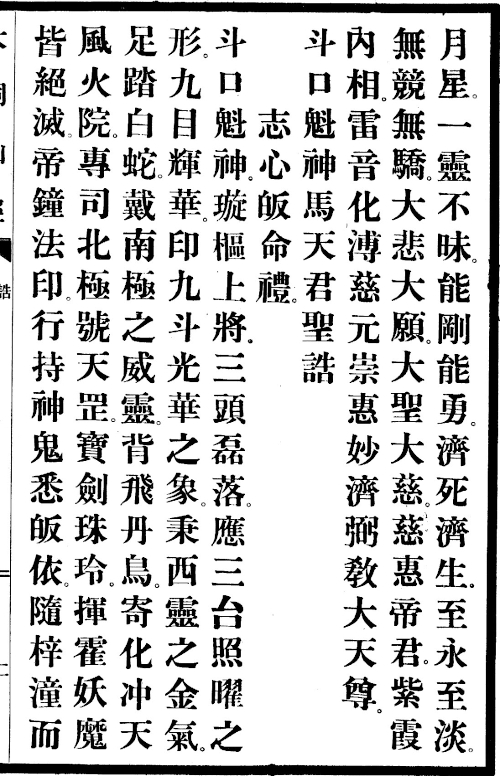 月星。一靈不昧。能剛能勇。濟死濟生。至永至淡。
無競無驕。大悲大願。大聖大慈。慈惠帝君。紫霞
內相。雷音化溥。慈元崇惠妙濟弼教大天尊。
斗口魁神馬天君聖誥
志心皈命禮。
斗口魁神。璇樞上將。三頭磊落。應三台照曜之
形。九目輝華。印九斗光華之象。秉西靈之金氣。
足踏白蛇。戴南極之威靈。背飛丹鳥。寄化冲天
風火院。專司北極號天罡。寶劍珠玲。揮霍妖魔
皆絕滅。帝鐘法印。行持神鬼悉皈依。隨梓潼而
誥